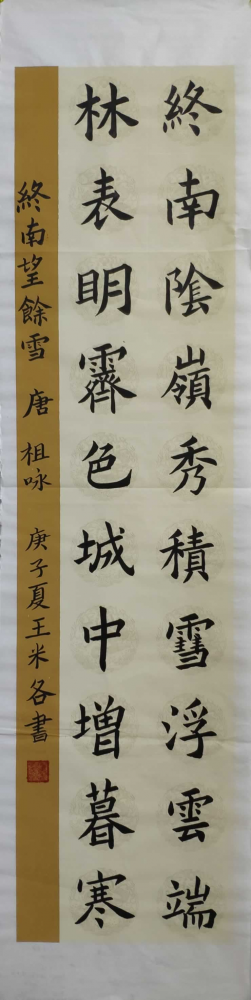 終南陰嶺秀積雪浮雲端
林表明霽色城中增暮寒
終南望餘雪 唐 祖咏 庚子夏王米各書